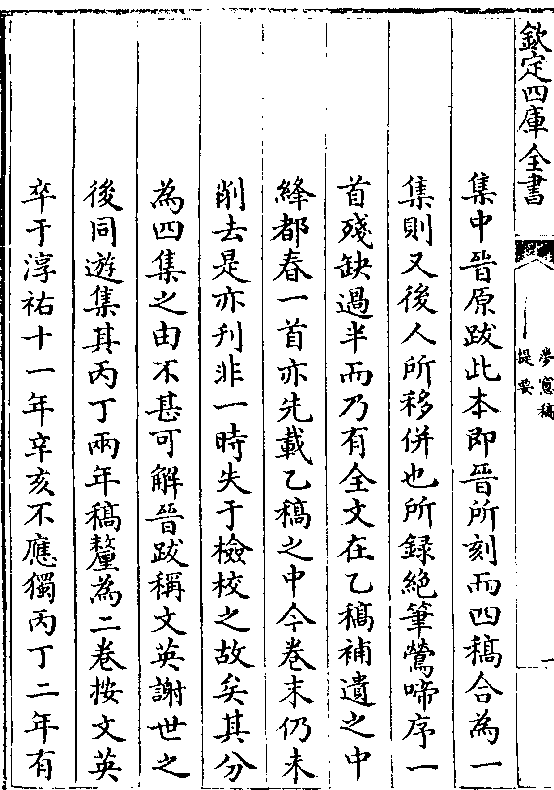 欽定四庫全書
夢窻稿
提要
一
集中晉原跋此本即晉所刻而四稿合為一
集則又後人所移併也所録絶筆鶯啼序一
首殘缺過半而乃有全文在乙稿補遺之中
絳都春一首亦先載乙稿之中今卷末仍未
削去是亦刋非一時失于檢校之故矣其分
為四集之由不甚可解晉跋稱文英謝世之
後同遊集其丙丁兩年稿釐為二卷按文英
卒于淳祐十一年辛亥不應獨丙丁二年有